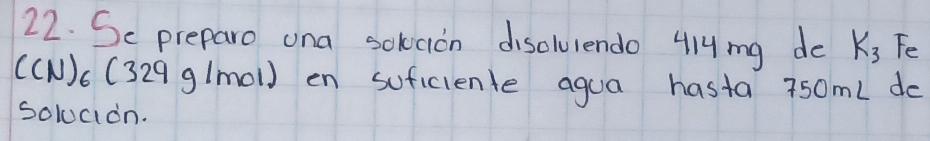 22. Se preparo una solución disolviendo 414 mg de K₃ Fe
(CN)₆ (329 g/mol) en suficiente agua hasta 750mL de
solución.